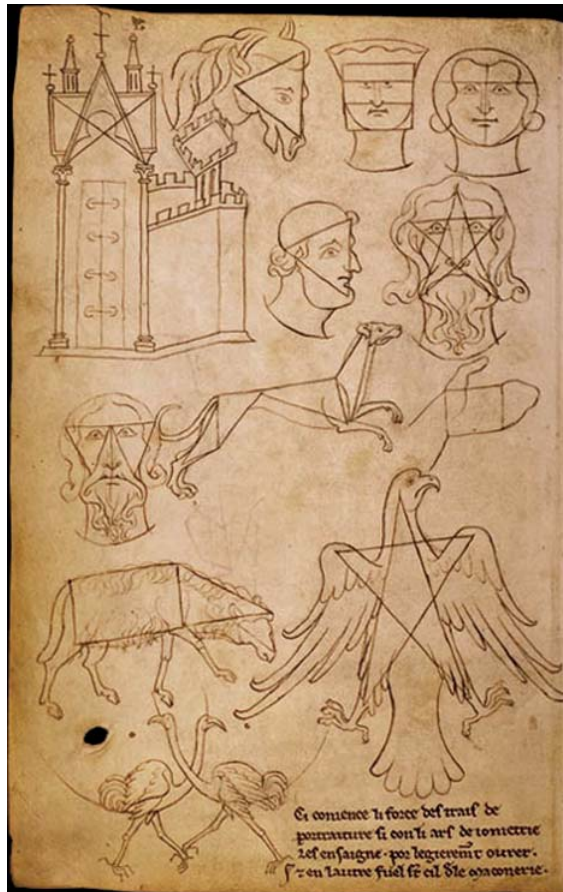 Ci comence li force des trais de
portraiture si con li ars de iometrie
les ensaigne · por legierem̄t ovrer ·
⁊ en lautre fuel st̄ cil d̄le maconerie ·